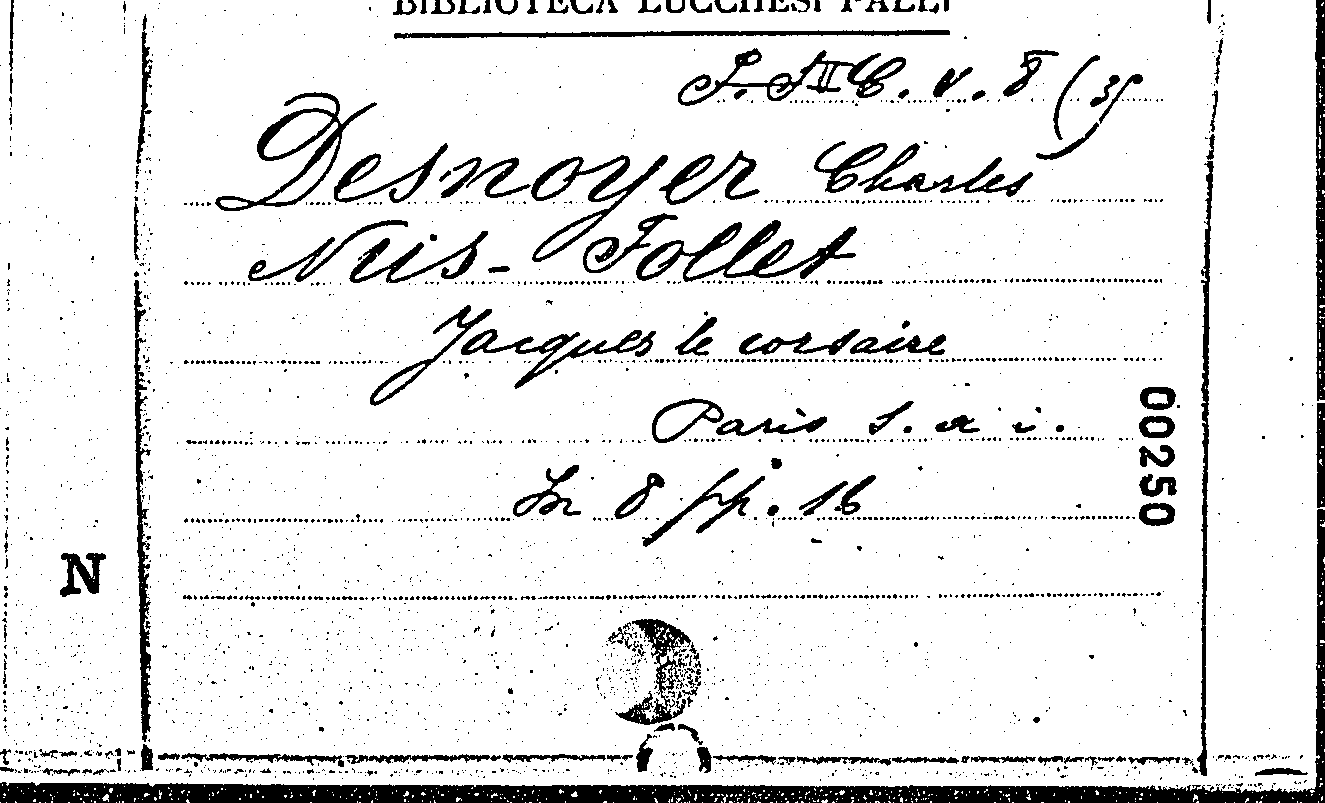 BIBLIOTECA LUCCHESI PALLI
C. v. 8 (35)
Desnoyer Charles
Nus-Follet
Jacques le corsaire
Paris s. a i.
In 8 pp. 16
00250
N